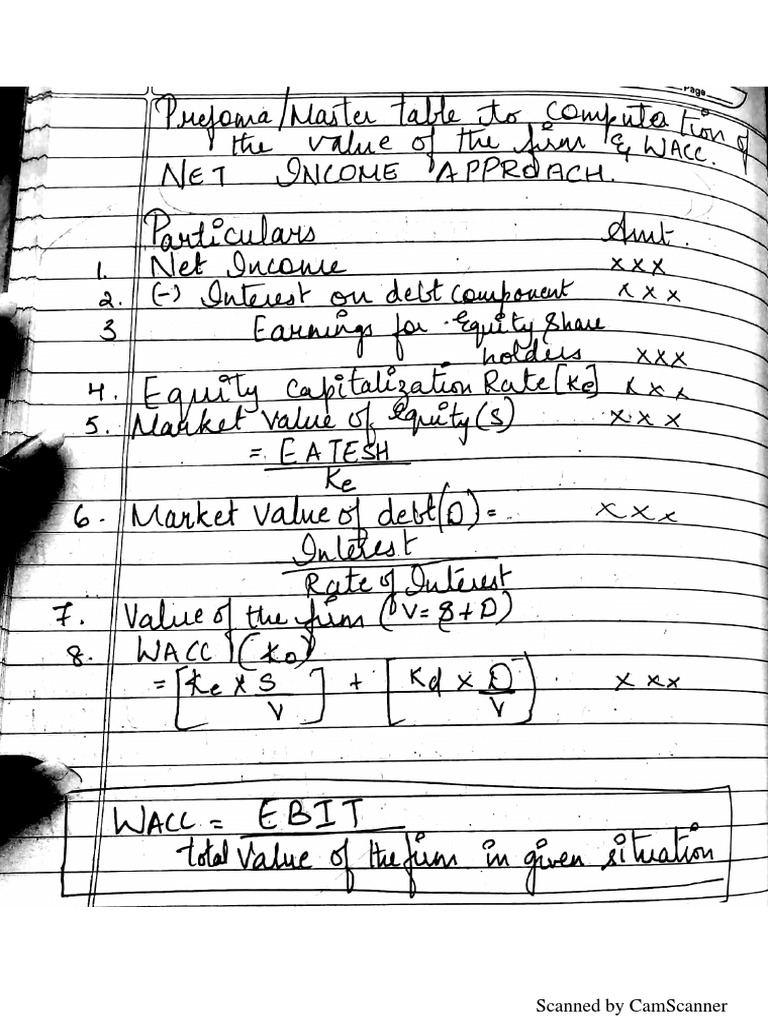 Page
Prefoma/Master table to computation of
the value of the firm & WACC.
NET INCOME APPROACH.
Particulars Amt.
1. Net Income xxx
2. (-) Interest on debt component xxx
3 Earnings for Equity Share
holders xxx
4. Equity Capitalization Rate [Ke] xxx
5. Market Value of Equity (S) xxx
= EATESH
Ke
6. Market Value of debt (D) = xxx
Interest
Rate of Interest
7. Value of the firm (V = S + D)
8. WACC (Ko)
= [Ke x S + [Kd x D xxx
V ] V )
WACC = EBIT
total Value of the firm in given situation
Scanned by CamScanner